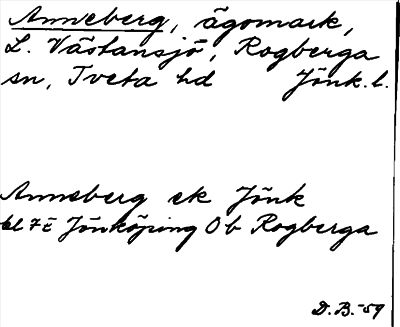 Anneberg, ägomark,
L. Västansjö, Rogberga
sn, Tveta hd Jönk. l.
Anneberg ek Jönk
bl 7 E Jönköping Ob Rogberga
D.B.-59